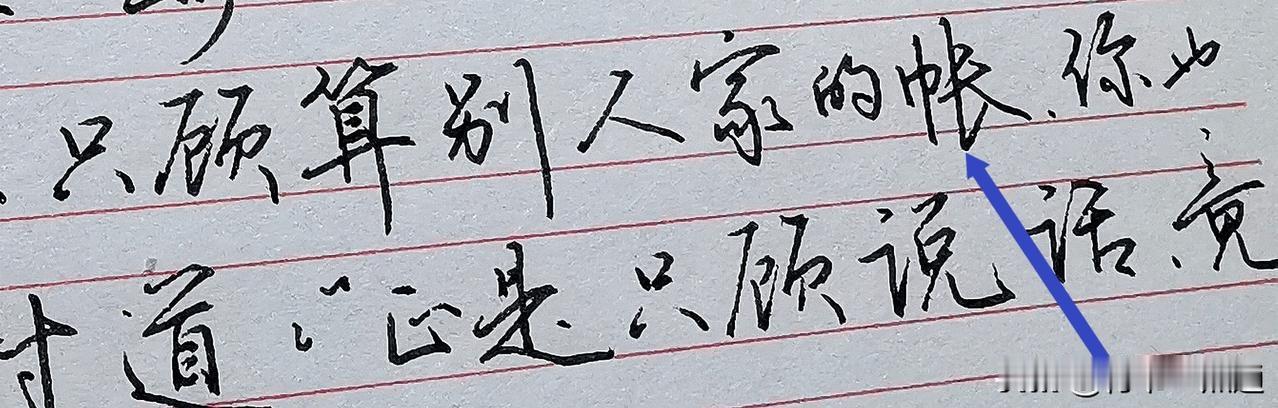 只顾算别人家的帐、你也
村道:“正是只顾说话、竟